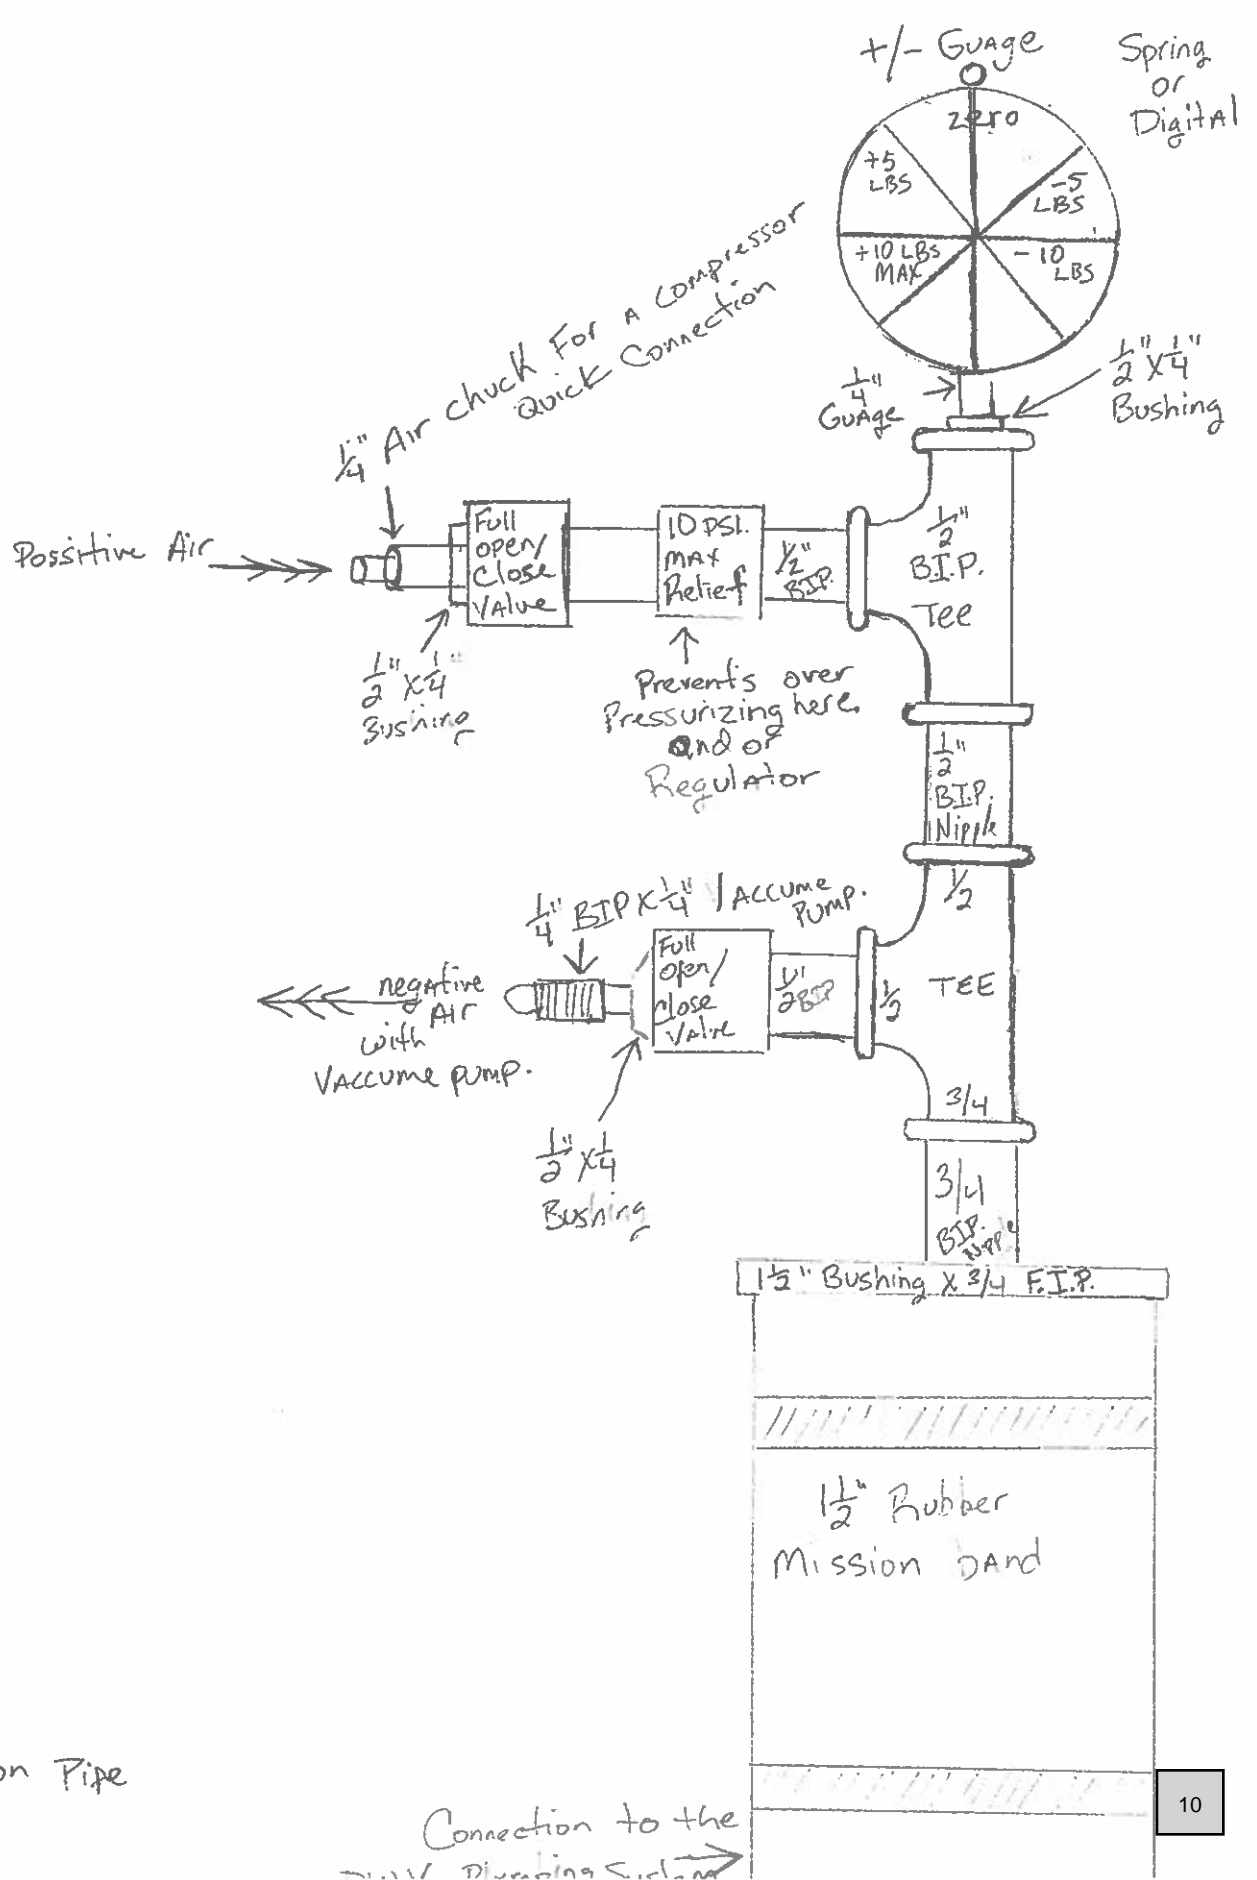 +/- Guage
Spring
or
Digital
zero
+5
LBS
-5
LBS
+10 LBS
MAX
-10
LBS
1/4" Air chuck For A compressor
Quick Connection
1/4"
Guage
1/2" X 1/4"
Bushing
Possitive Air
Full
open/
Close
Valve
10 PSI.
MAX
Relief
1/2"
BIP.
1/2"
B.I.P.
Tee
1/2" X 1/4"
Bushing
Prevents over
Pressurizing here
and or
Regulator
1/2"
B.I.P.
Nipple
1/4" BIP X 1/4" VACCUME
PUMP.
1/2
Full
open/
Close
Valve
1/2"
BIP
1/2
TEE
negative
Air
with
VACCUME PUMP.
3/4
1/2" X 1/4
Bushing
3/4
BIP.
Nipple
1 1/2" Bushing X 3/4 F.I.P.
1 1/2" Rubber
Mission
on Pipe
10
Connection to the
Plumbing System